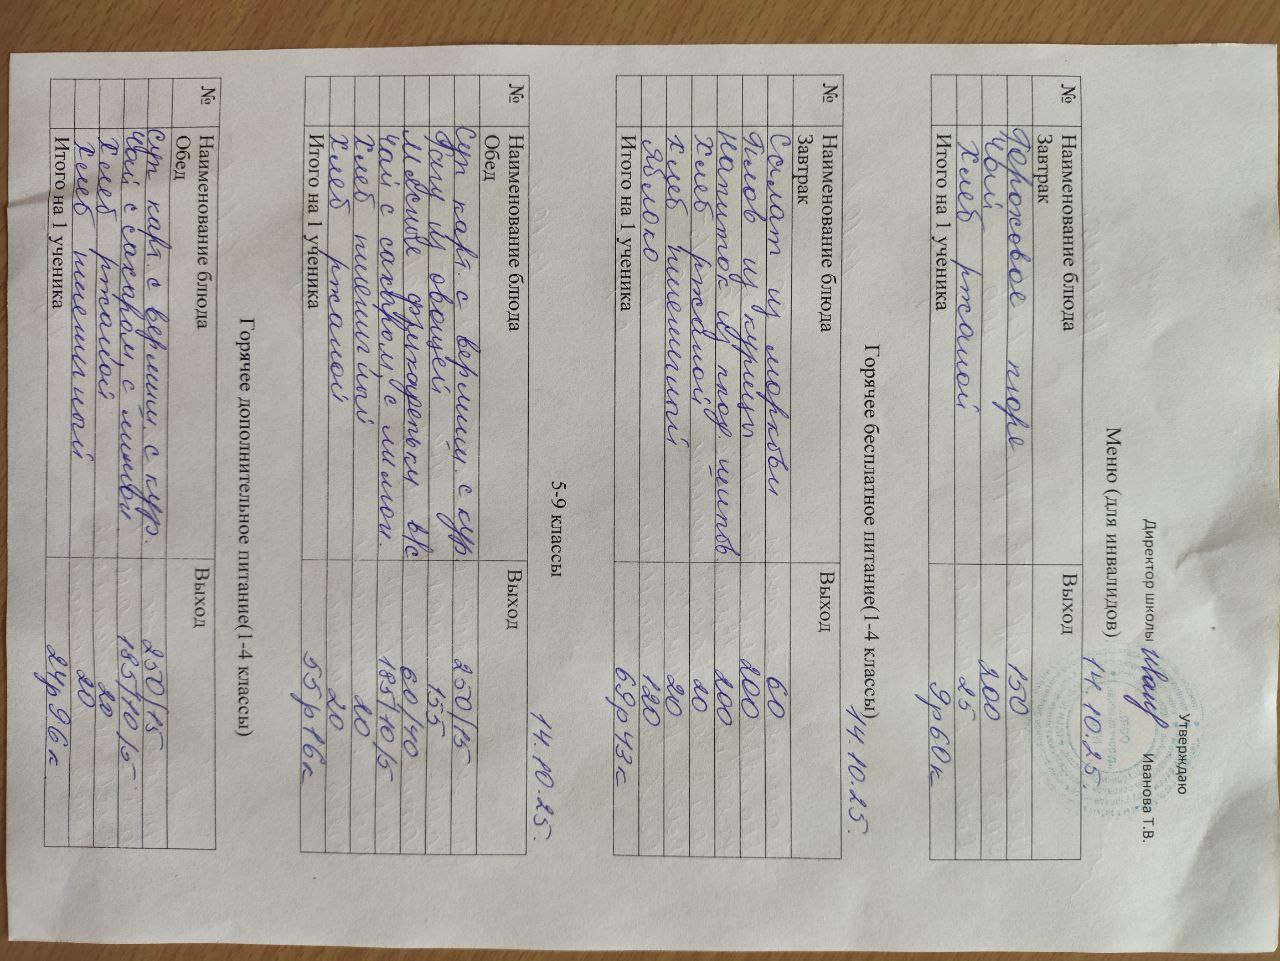 Утверждаю
Директор школы Иванова Т.В.
Меню (для инвалидов) 14.10.25.
№ Наименование блюда Выход
Завтрак
Гороховое пюре 150
Чай 200
Хлеб ржаной 25
Итого на 1 ученика 9р60к
Горячее бесплатное питание(1-4 классы) 14.10.25.
№ Наименование блюда Выход
Завтрак
Салат из моркови 60
Плов из курицы 200
Напиток из плод. шипов. 200
Хлеб ржаной 20
Хлеб пшеничный 20
Яблоко 120
Итого на 1 ученика 69р43к
5-9 классы 14.10.25.
№ Наименование блюда Выход
Обед
Суп карт. с вермиш. с кур. 250/15
Рагу из овощей 155
Мясные фрикадельки в/с 60/40
Чай с сахаром, с лимон. 185/10/5
Хлеб пшеничный 20
Хлеб ржаной 20
Итого на 1 ученика 55р16к
Горячее дополнительное питание(1-4 классы)
№ Наименование блюда Выход
Обед
Суп карт. с вермиш с кур. 250/15
Чай с сахаром, с лимон 185/10/5
Хлеб ржаной 20
Хлеб пшеничный 20
Итого на 1 ученика 24р96к